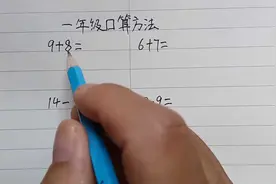 一年级口算方法
9+8= 6+7=
14- 9=